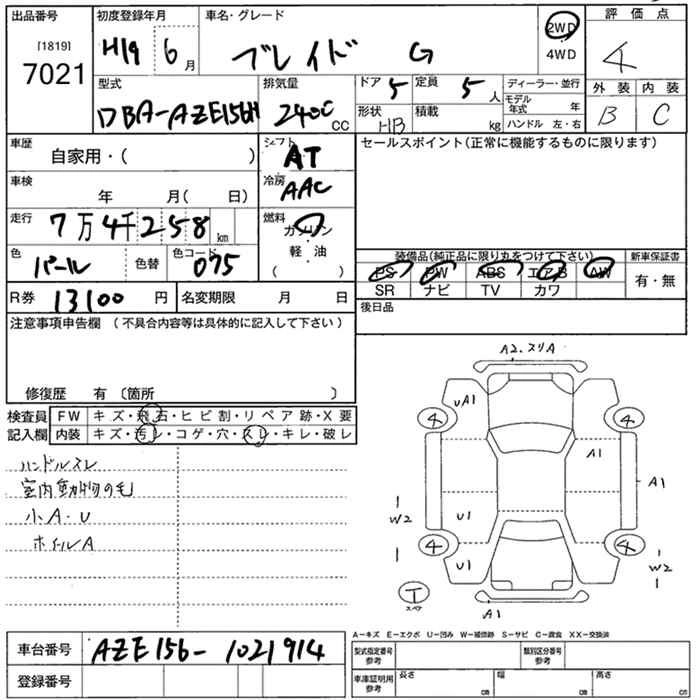 出品番号
[1819]
7021
初度登録年月
H19 6月
車名・グレード
ブレイド G
2WD
4WD
評価点
4
外装 内装
B C
型式
DBA-AZE156H
排気量
2400 CC
ドア 5
定員 5人
形状 HB
積載 kg
ディーラー・並行
モデル年式 年
ハンドル 左・右
車歴
自家用・( )
シフト
AT
セールスポイント(正常に機能するものに限ります)
車検
年 月( 日)
冷房
AAC
走行
7万4千258km
燃料
ガソリン
軽・油
( )
色
パール
色替
色コード
075
装備品(純正品に限り丸をつけて下さい)
PS PW ABS エアB AW
SR ナビ TV カワ
新車保証書
有・無
R券 13100円
名変期限 月 日
後日品
注意事項申告欄 (不具合内容等は具体的に記入して下さい)
修復歴 有 〔箇所 〕
検査員記入欄
FW キズ・飛石・ヒビ割・リペア跡・X要
内装 キズ・汚レ・コゲ・穴・スレ・キレ・破レ
ハンドルスレ
室内動物の毛
小A・U
ホイルA
A2.スリA
UA1
4 4
A1
A1
W2
U1
4 4
U1
W2
T
スペア
A1
A-キズ E-エクボ U-凹み W-補修跡 S-サビ C-腐食 XX-交換済
車台番号 AZE156-1021914
登録番号
型式指定番号 参考
類別区分番号 参考
車庫証明用 参考
長さ cm 幅 cm 高さ cm